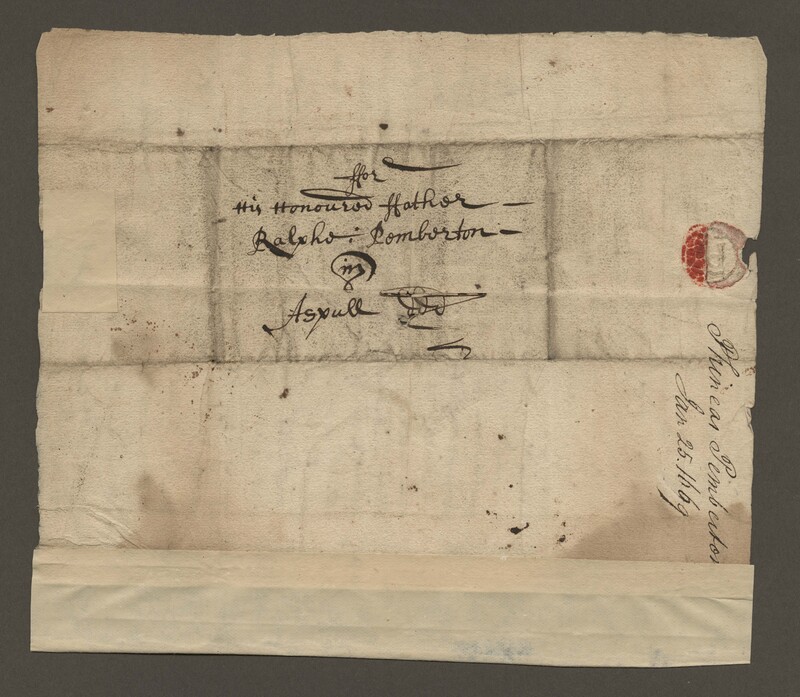 ffor
His Honoured ffather
Ralphe: Pemberton
in
Aspull
Phineas Pemberton
Jan 25. 1669